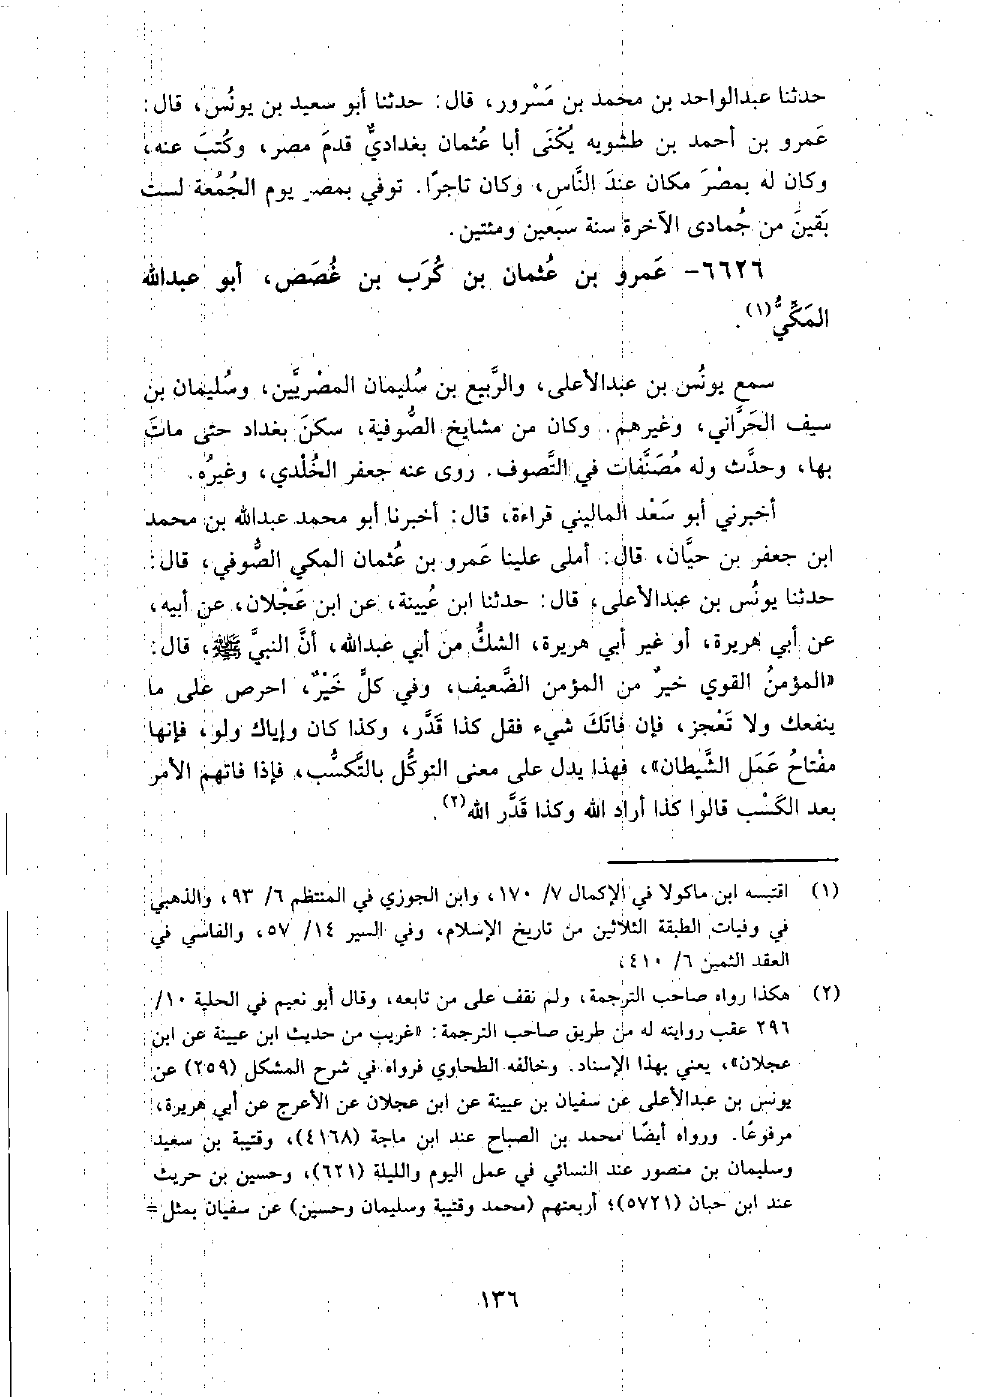 حدثنا عبدالواحد بن محمد بن مَسْرور، قال: حدثنا أبو سعيد بن يونُس، قال:
عَمرو بن أحمد بن طشويه يُكْنَى أبا عُثمان بغداديٌّ قدمَ مصر، وكُتبَ عنه،
وكان له بمصْرَ مكان عندَ النَّاس، وكان تاجرًا. توفي بمصر يوم الجُمُعة لست
بَقينَ من جُمادى الآخرة سنة سبعين ومئتين.
٦٦٢٦- عَمرو بن عُثمان بن كُرَب بن غُصَص، أبو عبدالله
المَكِّيُّ(١).
سمع يونُس بن عبدالأعلى، والرَّبيع بن سُليمان المصْريَّين، وسُليمان بن
سيف الحَرَّاني، وغيرهم. وكان من مشايخ الصُّوفية، سكنَ بغداد حتى ماتَ
بها، وحدَّث وله مُصَنَّفات في التَّصوف. روى عنه جعفر الخُلْدي، وغيرُه.
أخبرني أبو سَعْد الماليني قراءة، قال: أخبرنا أبو محمد عبدالله بن محمد
ابن جعفر بن حيَّان، قال: أملى علينا عَمرو بن عُثمان المكي الصُّوفي، قال:
حدثنا يونُس بن عبدالأعلى، قال: حدثنا ابن عُيينة، عن ابن عَجْلان، عن أبيه،
عن أبي هريرة، أو غير أبي هريرة، الشكُّ من أبي عبدالله، أنَّ النبيَّ ﷺ، قال:
«المؤمنُ القوي خيرٌ من المؤمن الضَّعيف، وفي كلٍّ خَيْرٌ، احرص على ما
ينفعك ولا تَعْجز، فإن فاتَكَ شيء فقل كذا قَدَّر، وكذا كان وإياك ولو، فإنها
مفْتاحُ عَمَل الشَّيطان»، فهذا يدل على معنى التوكُّل بالتَّكسُّب، فإذا فاتهم الأمر
بعد الكَسْب قالوا كذا أراد الله وكذا قَدَّر الله(٢).
(١) اقتبسه ابن ماكولا في الإكمال ٧/ ١٧٠، وابن الجوزي في المنتظم ٦/ ٩٣، والذهبي
في وفيات الطبقة الثلاثين من تاريخ الإسلام، وفي السير ١٤/ ٥٧، والفاسي في
العقد الثمين ٦/ ٤١٠.
(٢) هكذا رواه صاحب الترجمة، ولم نقف على من تابعه، وقال أبو نعيم في الحلية ١٠/
٢٩٦ عقب روايته له من طريق صاحب الترجمة: «غريب من حديث ابن عيينة عن ابن
عجلان»، يعني بهذا الإسناد. وخالفه الطحاوي فرواه في شرح المشكل (٢٥٩) عن
يونس بن عبدالأعلى عن سفيان بن عيينة عن ابن عجلان عن الأعرج عن أبي هريرة،
مرفوعًا. ورواه أيضًا محمد بن الصباح عند ابن ماجة (٤١٦٨)، وقتيبة بن سعيد
وسليمان بن منصور عند النسائي في عمل اليوم والليلة (٦٢١)، وحسين بن حريث
عند ابن حبان (٥٧٢١)؛ أربعتهم (محمد وقتيبة وسليمان وحسين) عن سفيان بمثل=
١٣٦